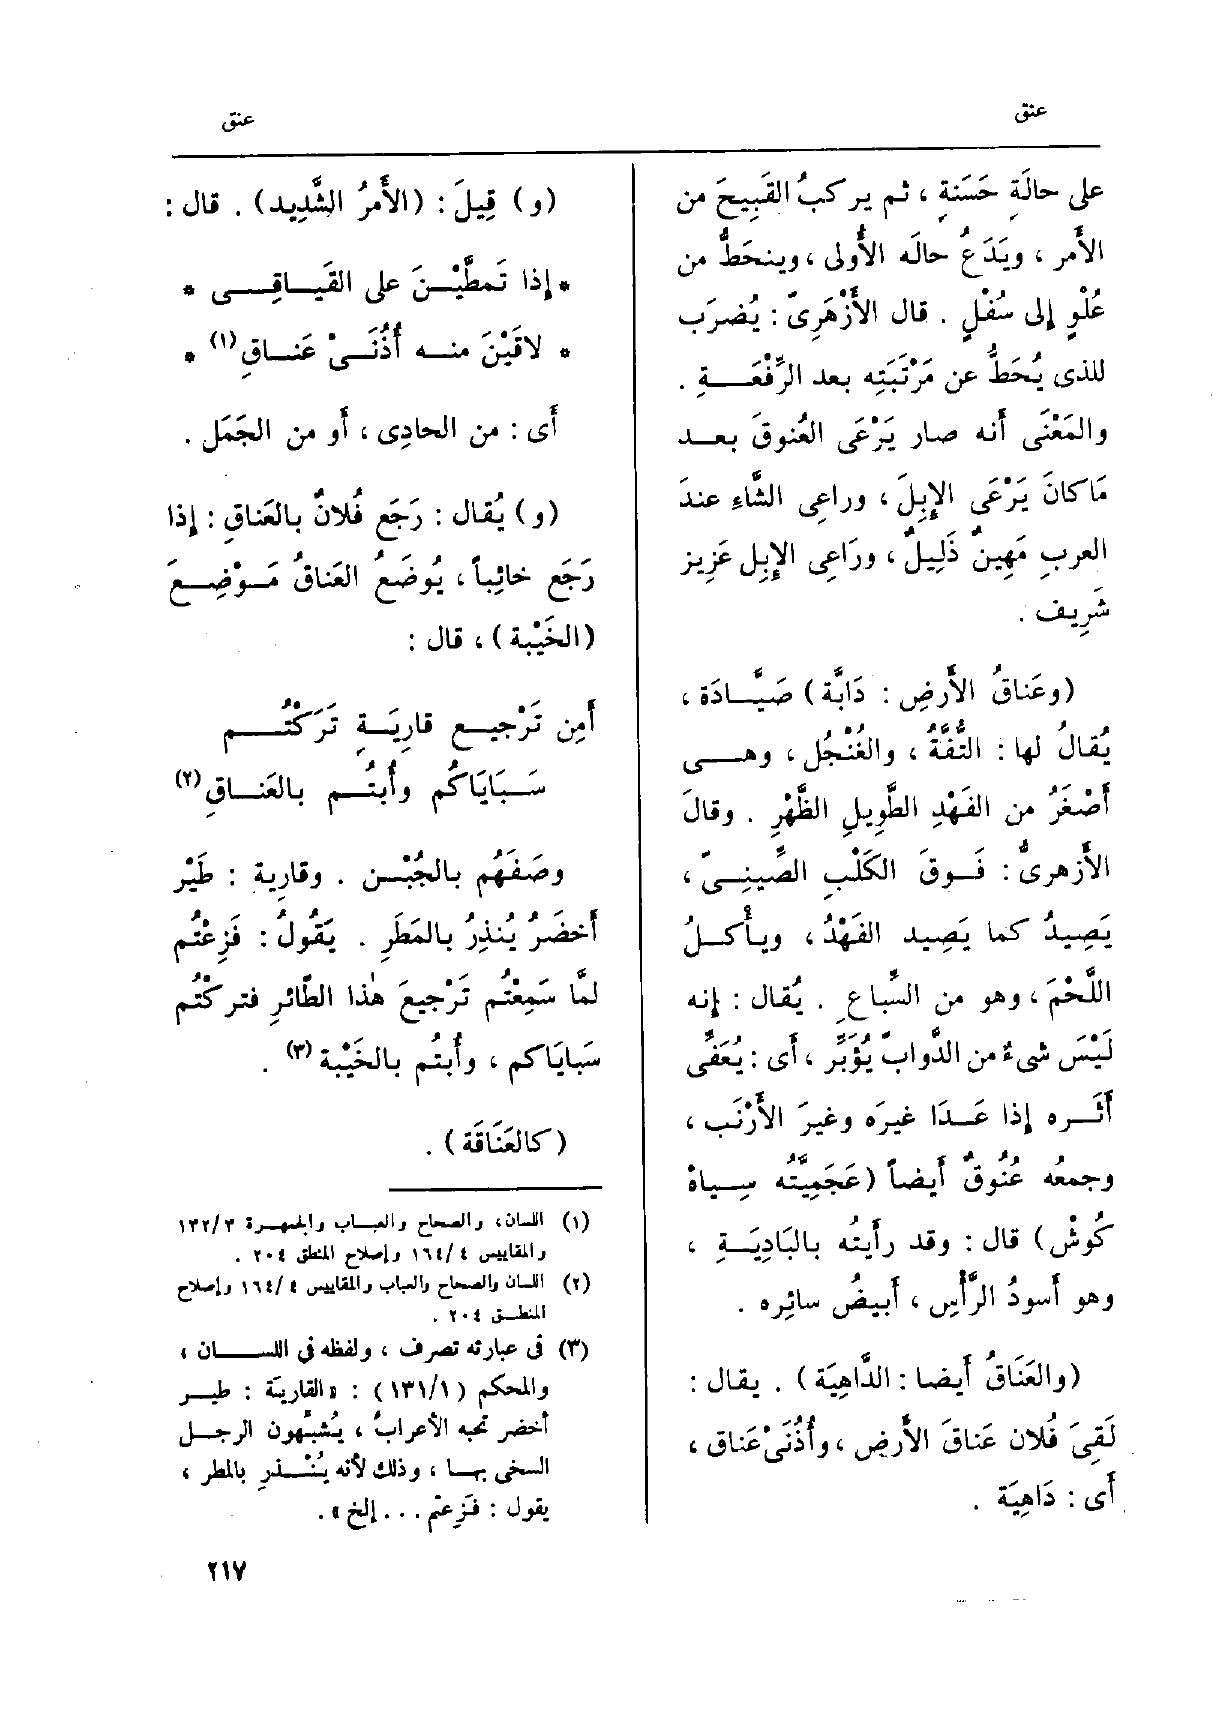 عنق
عنق
على حالَةٍ حَسَنةٍ ، ثم يركبُ القَبِيحَ من
الأَمر ، ويَدَعُ حالَه الأُولى ، وينحَطُّ من
عُلْوٍ إلى سُفْلٍ . قال الأَزْهَرِىّ : يُضرَب
للذى يُحَطُّ عن مَرْتَبَتِه بعد الرِّفْعَـــةِ .
والمَعْنَى أنه صار يَرْعَى العُنوقَ بعــد
مَا كانَ يَرْعَى الإِبِلَ ، وراعِى الشَّاءِ عندَ
العربِ مَهِينٌ ذَلِيلٌ ، ورَاعِى الإِبِل عَزِيز
شَرِيف .
(وعَناقُ الأَرضِ : دَابَّة) صَيَّــادَة ،
يُقالُ لها : التُّفَّةُ ، والغُنْجُل ، وهــى
أَصْغَرُ من الفَهْدِ الطَّوِيلِ الظَّهْرِ . وقالَ
الأَزهرىُّ : فَــوقَ الكَلْبِ الصِّينِــىّ ،
يَصِيدُ كما يَصِيد الفَهْدُ ، ويأْكــلُ
اللَّحْمَ ، وهو من السِّباعِ . يُقال : إنه
لَيْسَ شىءٌ من الدَّوابِّ يُؤَبِّر ، أى : يُعَفِّى
أَثَــره إذا عَــدَا غيرَه وغيرَ الأَرْنَب ،
وجمعُه عُنُوقٌ أَيضاً (عَجَمِيَّتُه سِـياهْ
كُوشْ) قال : وقد رأَيتُه بالبَادِيَــةِ ،
وهو أَسودُ الرَّأْسِ ، أَبيضُ سائِره .
(والعَنَاقُ أَيضا : الدَّاهِيَة) . يقال :
لَقِىَ فُلان عَناقَ الأَرضِ ، وأُذُنَىْ عَناق ،
أَى : دَاهِيَة .
(و) قِيلَ : (الأَمرُ الشَّدِيد) . قال :
* إذا تَمطَّيْــنَ على القَيــاقِــى *
* لاقَيْنَ منــه أُذُنَــىْ عَنــاقِ (١) *
أَى : من الحادِى ، أَو من الجَمَل .
(و) يُقال : رَجَع فُلانٌ بالعَناقِ : إذا
رَجَع خائِباً ، يُوضَعُ العَناقُ مَــوْضِــعَ
(الخَيْبة) ، قال :
أَمِن تَرْجيــع قارِيَــةٍ تَرَكْتُــم
سَــبَايَاكُم وأُبتُــم بالعَنــاقِ (٢)
وصَفَهُم بالجُبْــن . وقارِية : طَيْر
أَخضَرُ يُنذِرُ بالمَطَرِ . يَقُولُ : فَزِعْتُم
لمَّا سَمِعْتُم تَرْجيعَ هٰذا الطَّائرِ فتركْتُم
سَبَايَاكم ، وأُبتُم بالخَيْبة (٣) .
(كالعَنَاقَة) .
(١) اللسان، والصحاح والعباب والجمهرة ٣/١٣٢
والمقاييس ٤/١٦٤ وإصلاح المنطق ٢٠٤ .
(٢) اللسان والصحاح والعباب والمقاييس ٤/١٦٤ وإصلاح
المنطق ٢٠٤ .
(٣) فى عبارته تصرف ، ولفظه فى اللســان ،
والمحكم (١/١٣١) : «القارية : طيــر
أخضر تحبه الأعرابُ ، يُشبِّهون الرجــل
السخى بهــا ، وذلك لأنه يُنْــذر بالمطر ،
يقول : فَزِعتم ... إلخ» .
٢١٧